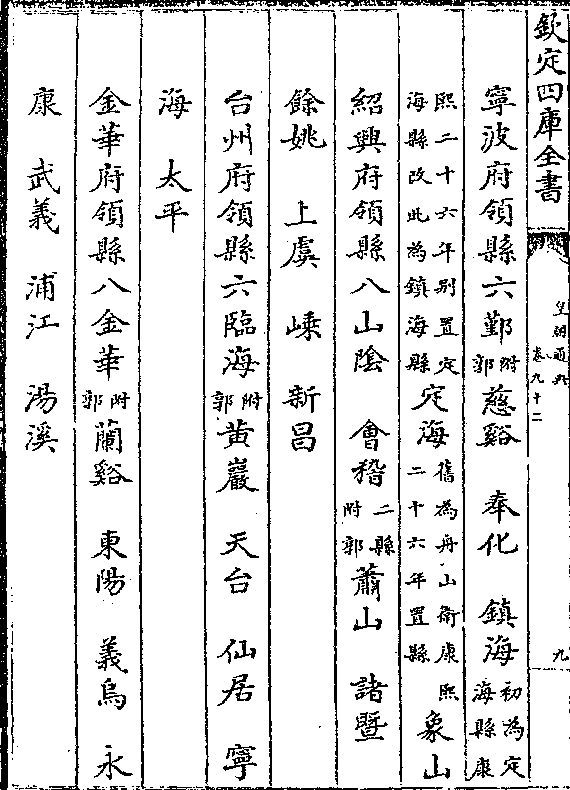 欽定四庫全書
皇朝通典
卷九十二
九
寧波府領縣六鄞附郭慈谿 奉化 鎮海初為定海縣康
熙二十六年別置定海縣改此為鎮海縣定海舊為舟山衛康熙二十六年置縣象山
紹興府領縣八山陰 會稽二縣附郭蕭山 諸暨
餘姚 上虞 嵊 新昌
台州府領縣六臨海附郭黃巖 天台 仙居 寧
海 太平
金華府領縣八金華附郭蘭谿 東陽 義烏 永
康 武義 浦江 湯溪